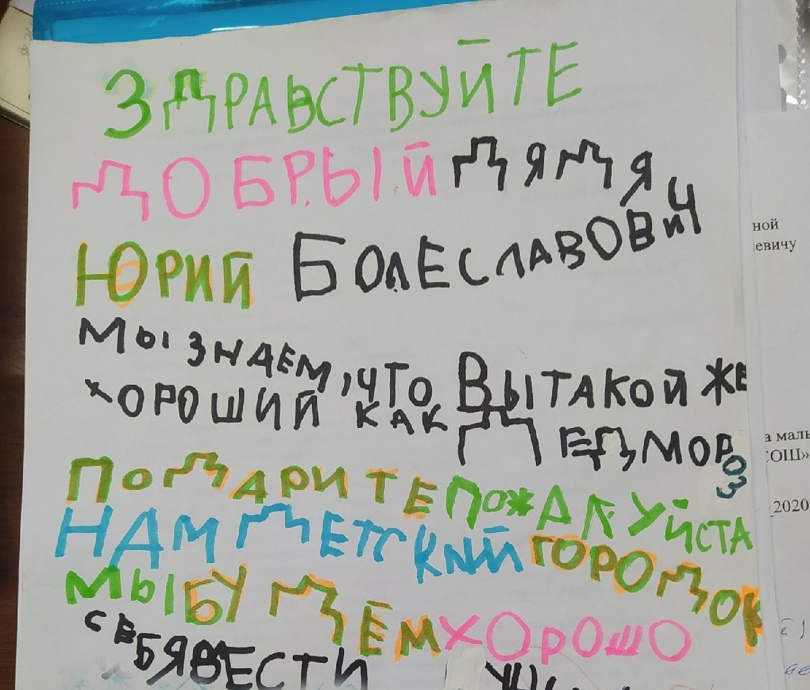 ЗДРАВСТВУЙТЕ
ДОБРЫЙ ДЯДЯ
ЮРИЙ БОЛЕСЛАВОВИЧ
МЫ ЗНАЕМ, ЧТО ВЫ ТАКОЙ ЖЕ
ХОРОШИЙ КАК ДЕДМОРОЗ
ПОДАРИТЕ ПОЖАЛУЙСТА
НАМ ДЕТСКИЙ ГОРОДОК
МЫ БУДЕМ ХОРОШО
СЕБЯ ВЕСТИ
ной
евичу
а маль
СОШ»
_2020